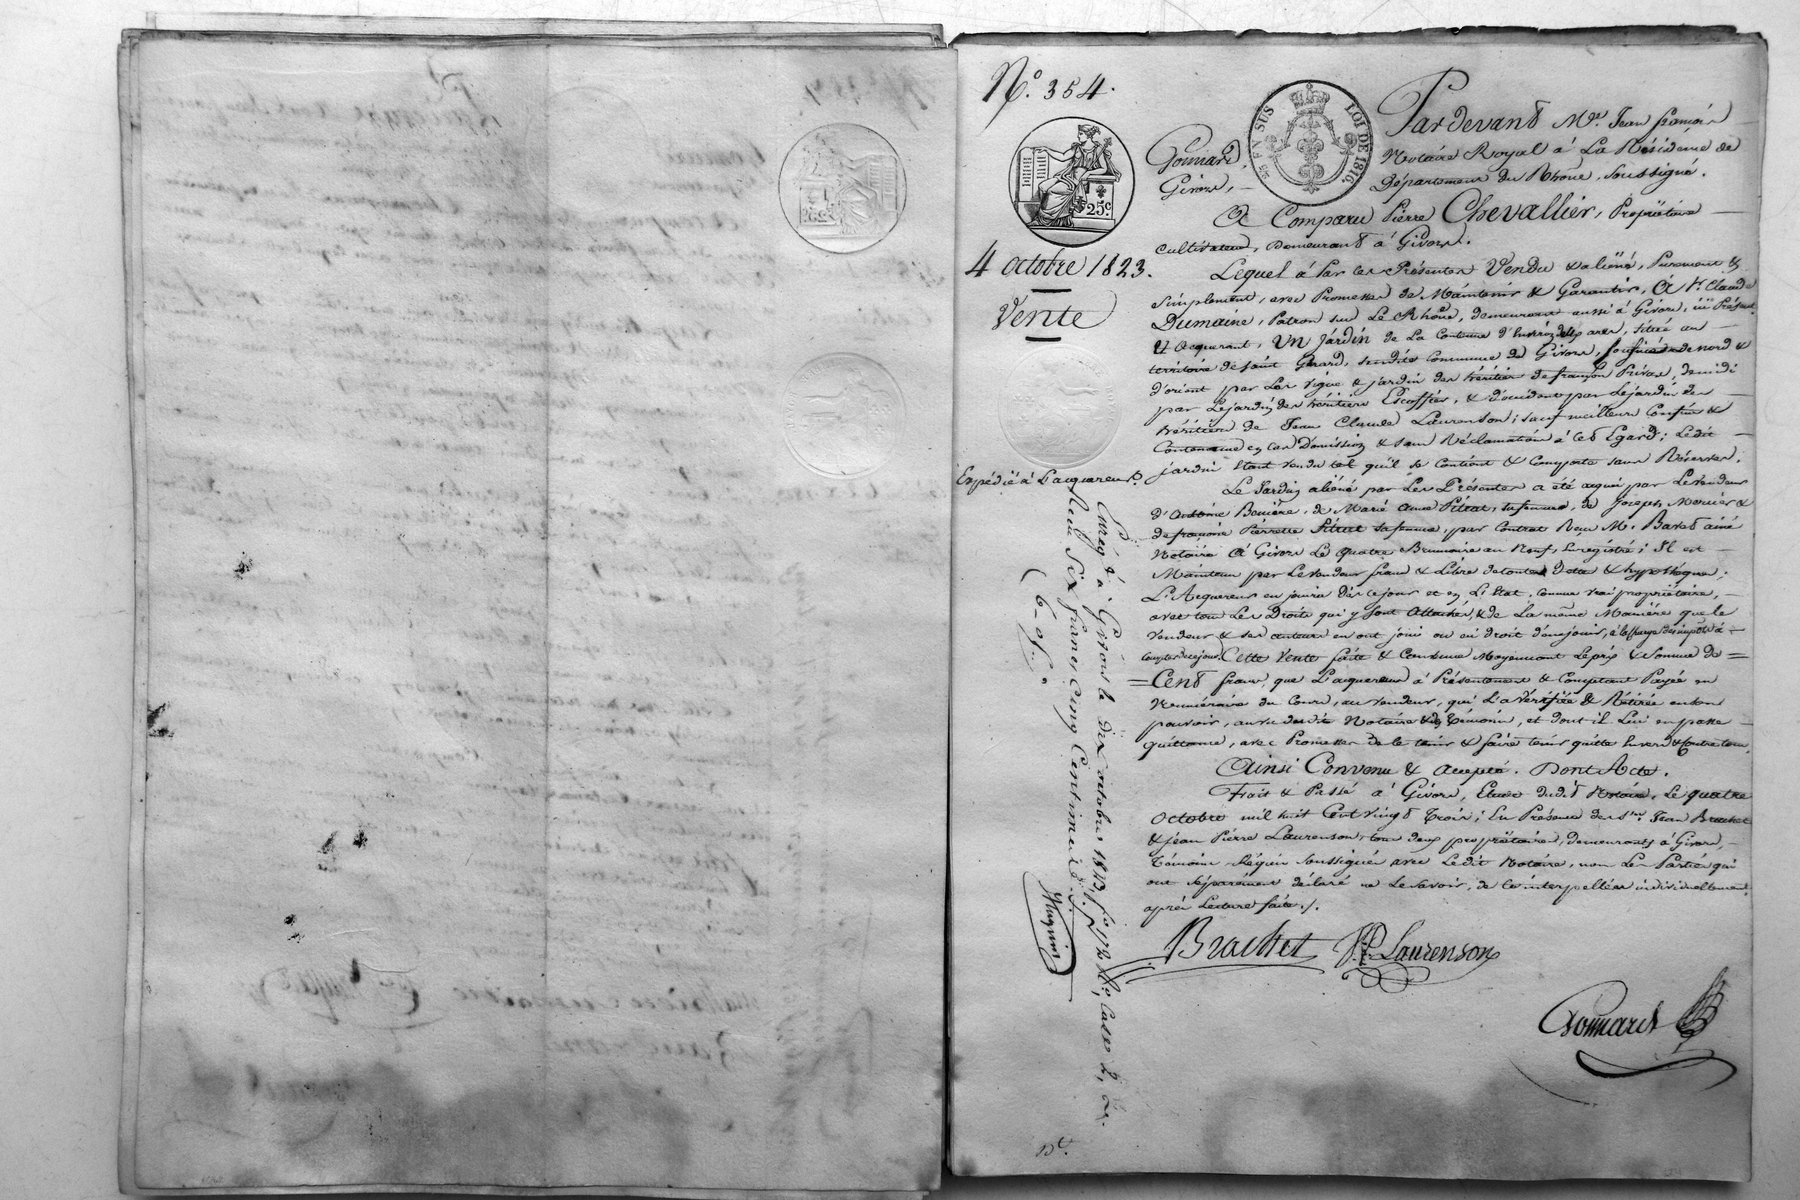 N.° 354.
EN SUS
LOI DE 1816.
25.c
4 octobre 1823.
Vente
Expédié à l'acquereur.
Pardevant M.e Jean françois
Gonnard, Notaire Royal à La Résidence de
Givors, Département du Rhône, Soussigné.
A Comparu Pierre Chevallier, Propriétaire
cultivateur, Demeurant à Givors.
Lequel à Par les Présentes Vendu & aliéné, Purement &
Simplement, avec Promesse de Maintenir & Garantir, A Sr. Claude
Dumaine, Patron sur Le Rhône, demeurant aussi à Givors, ici Présent
& Acquerant, Un Jardin de La Contenue d'environ deux ares, situé au
territoire de saint Gérard, susdite Commune de Givors, joignant de nord &
d'orient par Les vigne & jardin des héritiers de françois Privas, de midi
par Le jardin des héritiers Escoffier, & d'occident par Le jardin des
héritiers de Jean Claude Laurenson; sauf meilleurs Confins &
Contenance en cas D'omission & sans Réclamation à cet Egard; Ledit
jardin étant vendu tel qu'il se Contient & Comporte sans Réserves.
Le Jardin aliéné par Les Présentes a été acquis par Le vendeur
d'Antoine Benière, de Marie Anne Pitrat, sa femme, de Joseph Mercier &
de françoise Pierrette Pitrat sa femme, par Contrat Reçu M.e Baret ainé
Notaire A Givors Le quatre Brumaire an Neuf, Enregistré; Il est
Maintenu par Le vendeur franc & Libre de toutes Dette & hypothèque;
L'Acquereur en jouira dès ce jour et en L'Etat, comme vrai propriétaire,
avec tous Les Droits qui y sont Attachés, & de La même Manière que le
vendeur & ses auteurs en ont joui ou eu droit d'en jouir, à la charge des impôts à
compter de ce jour. Cette vente faite & Convenue Moyennant Le prix & Somme de =
= Cent francs, que L'acquereur à Présentement & Comptant Payée en
Numéraire du Cours, au vendeur, qui L'a vérifiée & Retirée en son
pouvoir, au vu dudit Notaire & des Témoins, et dont il Lui en passe
quittance, avec Promesse de le tenir & faire tenir quitte Envers & Contre tous.
Ainsi Convenu & Accepté. Dont Acte.
Fait & Passé à Givors, Etude dudit Notaire, Le quatre
Octobre mil huit Cent vingt Trois; En Présence des s.rs Jean Brachet
& Jean Pierre Laurenson, tous deux propriétaires, demeurants à Givors,
Témoins Requis soussignés avec Ledit Notaire, non Les Parties qui
ont séparément déclaré ne Le savoir, de ce interpellées individuellement
après Lecture faite./.
Brachet JP Laurenson
Gonnard
Enreg.é à Givors le dix octobre 1823, f.o 172 R.o, Case 2,
Reçu Six francs Cinq Centimes
(6-05.